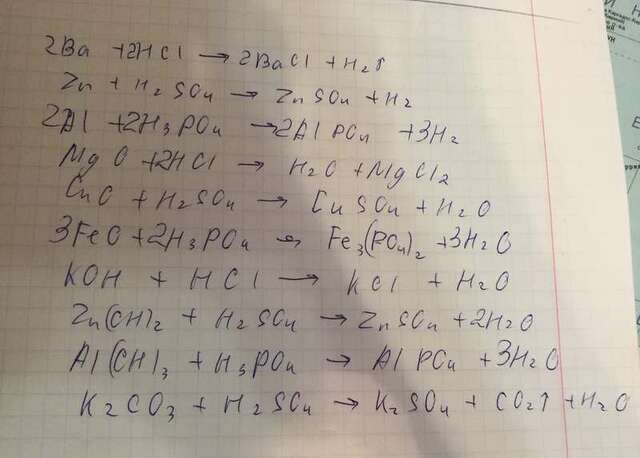 2Ba + 2HCl → 2BaCl + H₂↑
Zn + H₂SO₄ → ZnSO₄ + H₂
2Al + 2H₃PO₄ → 2AlPO₄ + 3H₂
MgO + 2HCl → H₂O + MgCl₂
CuO + H₂SO₄ → CuSO₄ + H₂O
3FeO + 2H₃PO₄ → Fe₃(PO₄)₂ + 3H₂O
KOH + HCl → KCl + H₂O
Zn(OH)₂ + H₂SO₄ → ZnSO₄ + 2H₂O
Al(OH)₃ + H₃PO₄ → AlPO₄ + 3H₂O
K₂CO₃ + H₂SO₄ → K₂SO₄ + CO₂↑ + H₂O